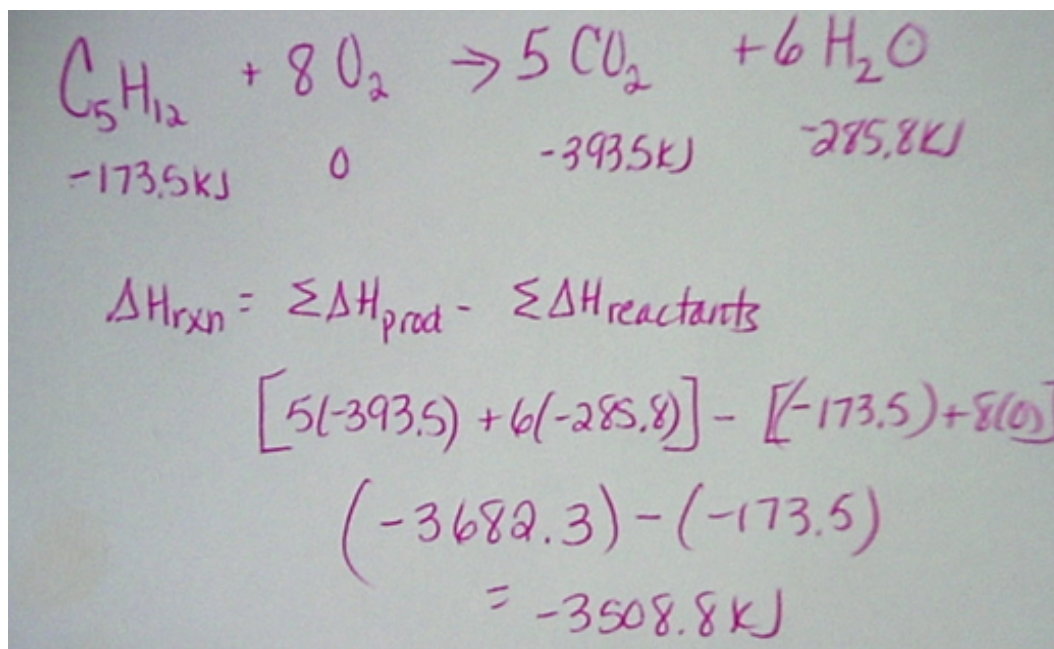 C₅H₁₂ + 8 O₂ → 5 CO₂ + 6 H₂O
-173.5kJ 0 -393.5kJ -285.8kJ
ΔHrxn = ΣΔHprod - ΣΔHreactants
[5(-393.5) + 6(-285.8)] - [(-173.5) + 8(0)]
(-3682.3) - (-173.5)
= -3508.8 kJ